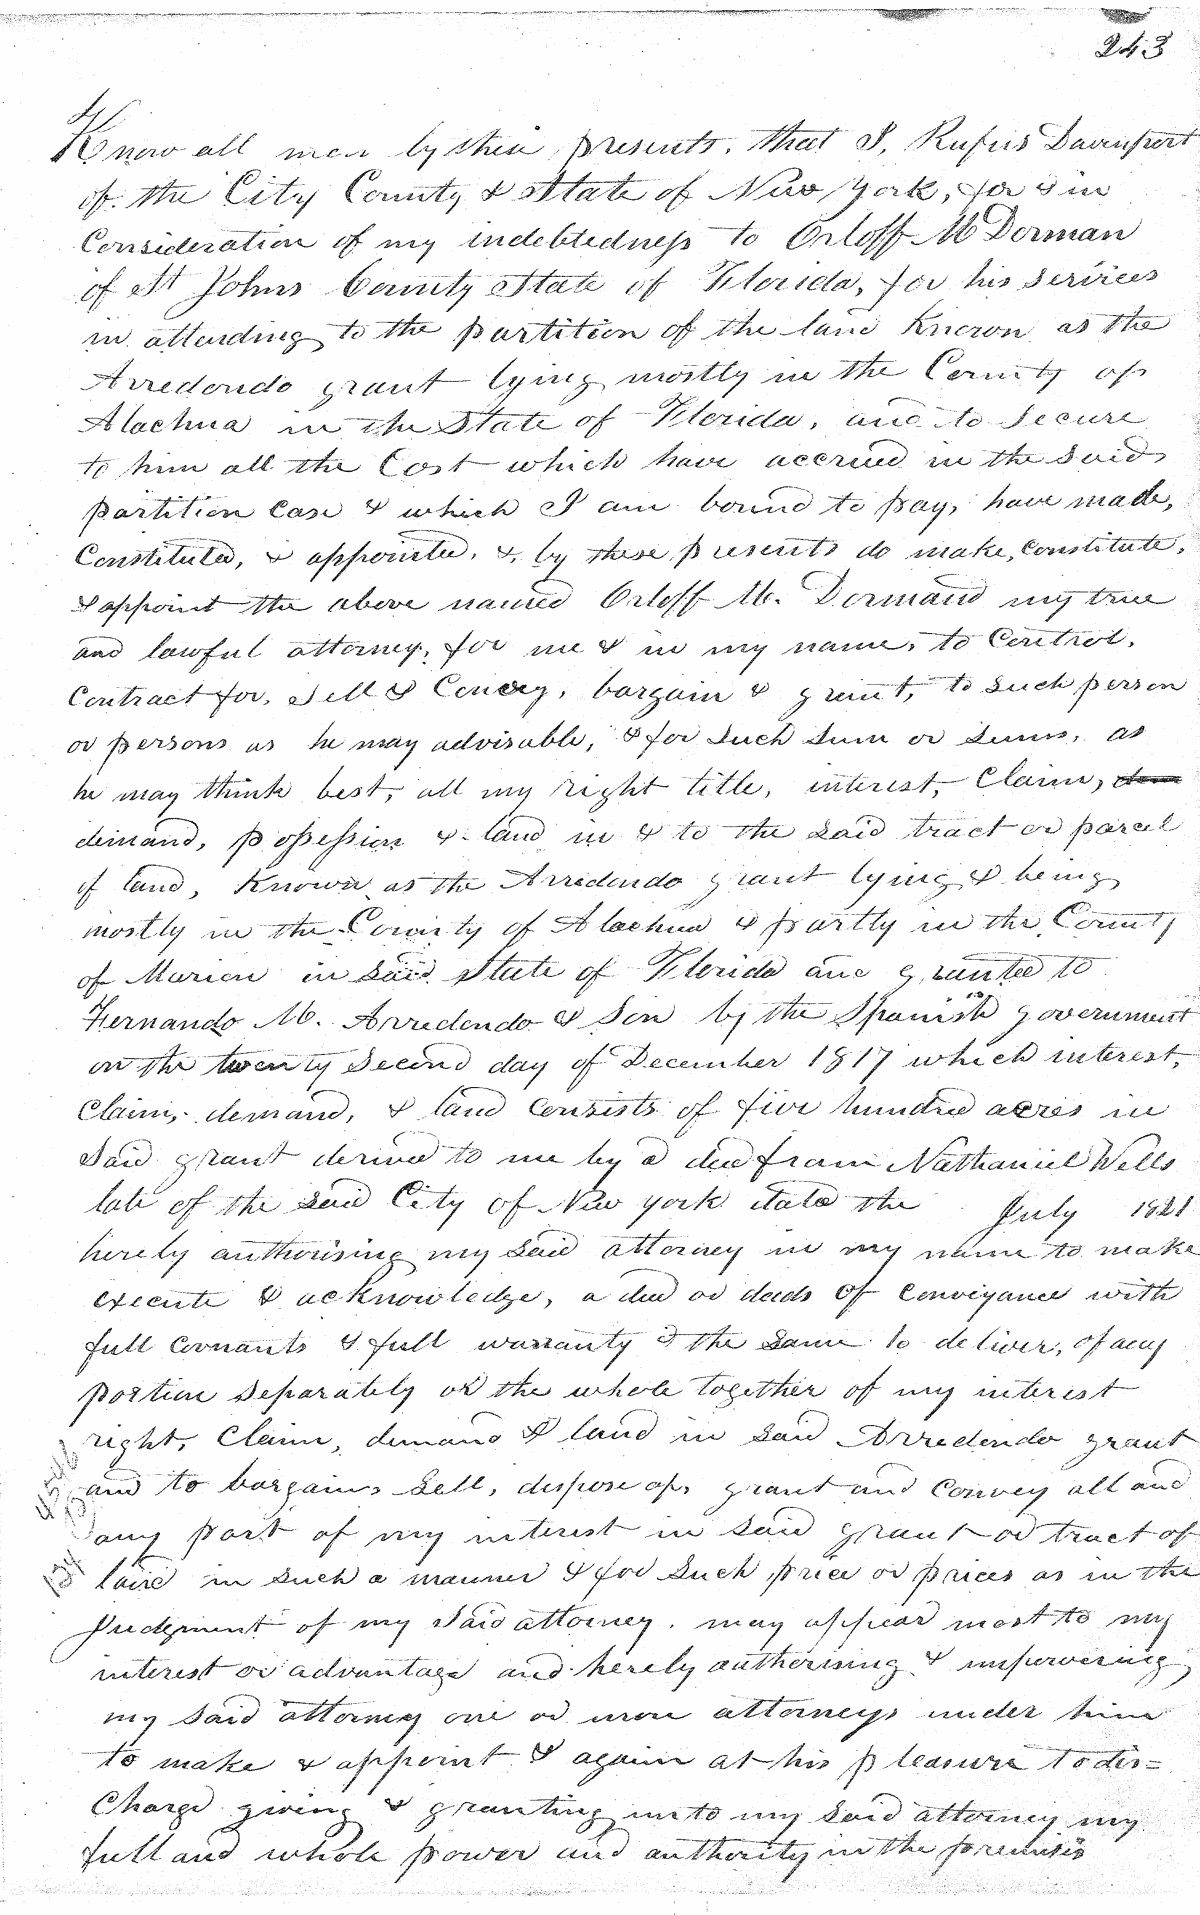 243
Know all men by these presents, that I, Rufus Davenport
of the City County & State of New York, for & in
Consideration of my indebtedness to Orloff M Dorman
of St Johns County State of Florida, for his services
in attending to the partition of the land Known as the
Arredondo grant lying mostly in the County of
Alachua in the State of Florida, and to secure
to him all the Cost which have accrued in the said
partition Case & which I am bound to pay, have made,
Constituted, & appointed, & by these presents do make, constitute,
& appoint the above named Orloff M. Dorman my true
and lawful attorney, for me & in my name, to Control,
Contract for, Sell & Convey, bargain & grant, to such person
or persons as he may advisable, & for such sum or sums, as
he may think best, all my right title, interest, Claim, dem
demand, possession & land in & to the said tract or parcel
of land, Known as the Arredondo grant lying & being
mostly in the County of Alachua & partly in the County
of Marion in said State of Florida and granted to
Fernando M. Arredondo & Son by the Spanish government
on the twenty second day of December 1817 which interest,
Claim, demand, & land consists of five hundred acres in
said grant derived to me by a deed from Nathaniel Wells
late of the said City of New York date the July 1821
hereby authorising my said attorney in my name to make
execute & acknowledge, a deed or deeds of conveyance with
full covnants & full warranty & the same to deliver, of any
portion separately or the whole together of my interest
right, Claim, demand & land in said Arredondo grant
and to bargain, Sell, dispose of, grant and convey all and
any part of my interest in said grant or tract of
land in such a manner & for such price or prices as in the
Judgment of my said attorney, may appear most to my
interest or advantage and hereby authorising & impowering
my said attorney one or more attorneys under him
to make & appoint & again at his pleasure to dis=
Charge giving & granting unto my said attorney my
full and whole power and authority in the premises